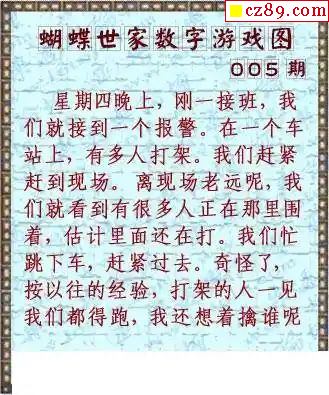 cz89.com
蝴蝶世家数字游戏图
005期
星期四晚上，刚一接班，我
们就接到一个报警。在一个车
站上，有多人打架。我们赶紧
赶到现场。离现场老远呢，我
们就看到有很多人正在那里围
着，估计里面还在打。我们忙
跳下车，赶紧过去。奇怪了，
按以往的经验，打架的人一见
我们都得跑，我还想着擒谁呢